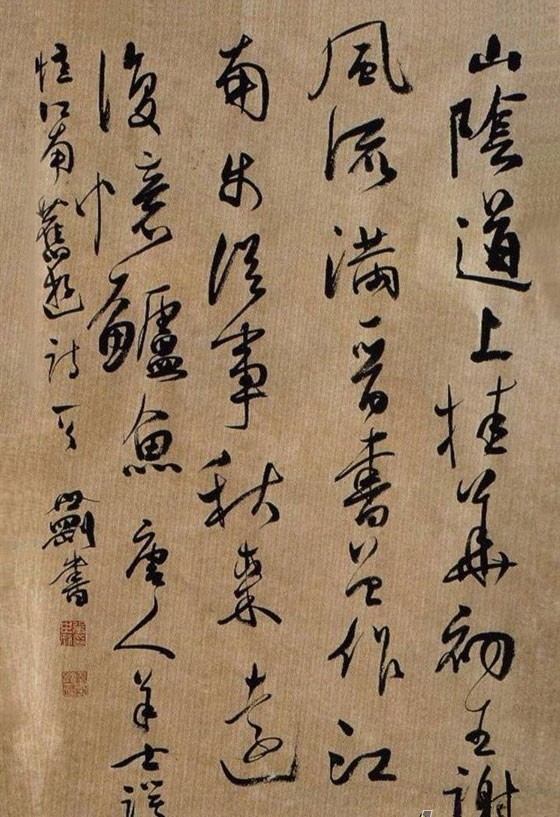 山陰道上桂華初王謝
風流滿晉書曾作江
南步從事秋來還
復憶鱸魚唐人羊士諤
憶江南舊遊詩 書